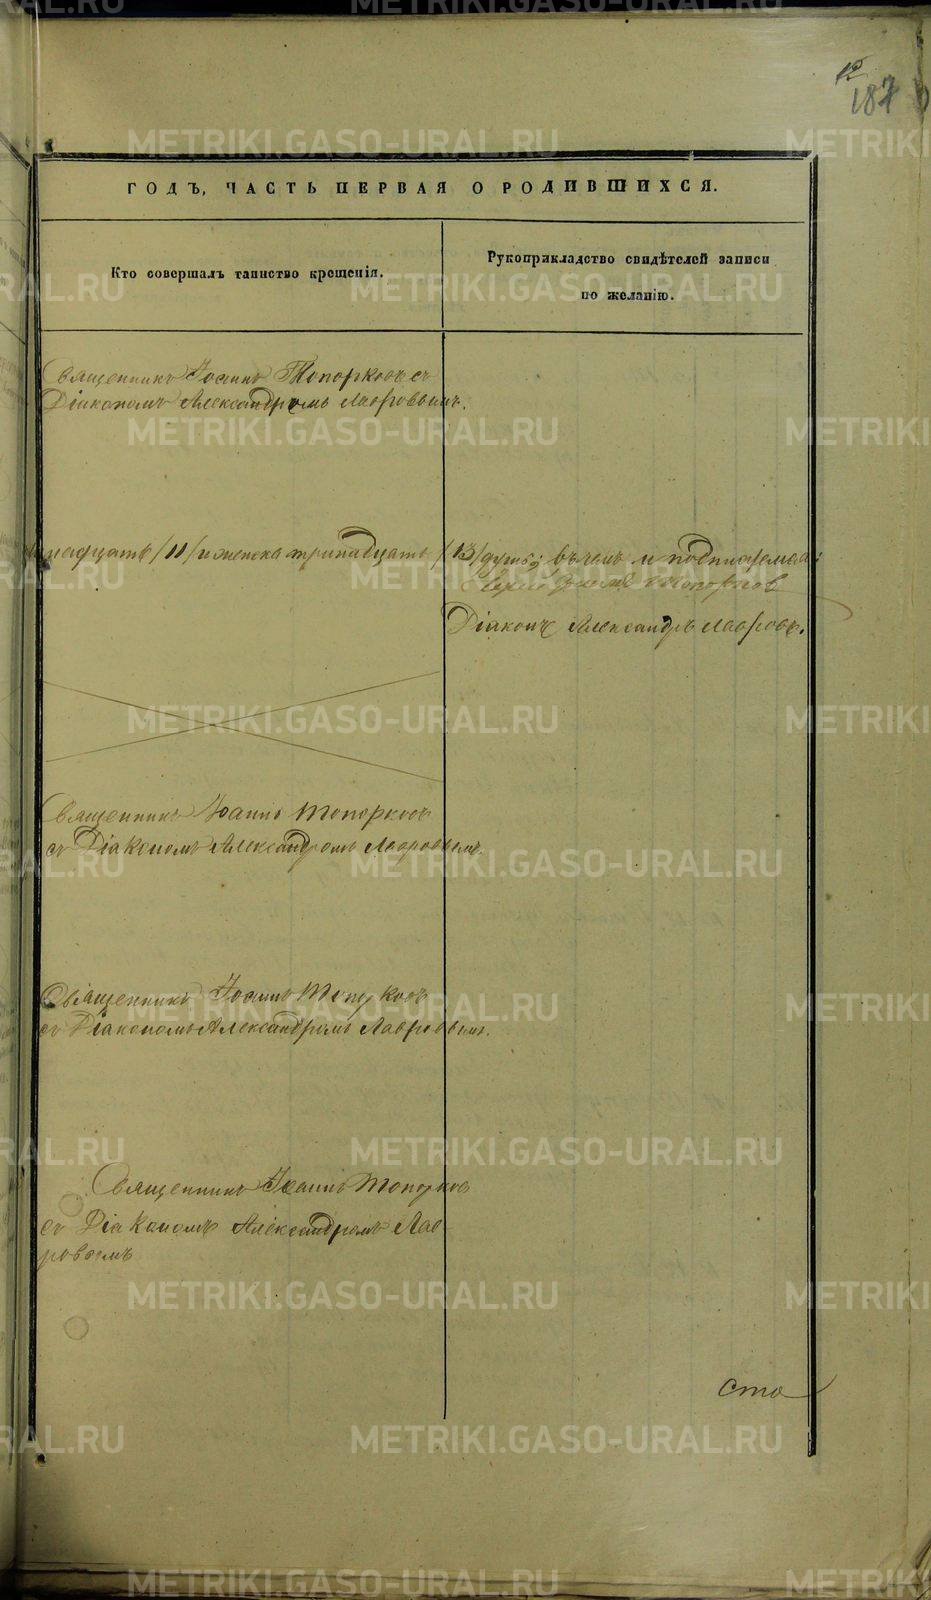 12
187
ГОДЪ, ЧАСТЬ ПЕРВАЯ О РОДИВШИХСЯ.
Кто совершалъ таинство крещенія.
Рукоприкладство свидѣтелей записи
по желанію.
Священникъ Іоаннъ Топорковъ съ
Діакономъ Александромъ Лавровымъ.
надцать /11/ и женска тринадцать /13/ душъ; въ чемъ и подписуемся:
Іоаннъ Топорковъ
Діаконъ Александръ Лавровъ.
Священникъ Іоаннъ Топорковъ
съ Діакономъ Александромъ Лавровымъ.
Священникъ Іоаннъ Топорковъ
съ Діакономъ Александромъ Лавровымъ.
Священникъ Іоаннъ Топорковъ
съ Діакономъ Александромъ Лав-
ровымъ
сто
METRIKI.GASO-URAL.RU